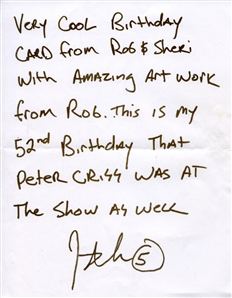 Very Cool Birthday
Card from Rob & Sheri
With Amazing Art Work
from Rob. This is my
52nd Birthday That
Peter Criss was at
The Show as well
5